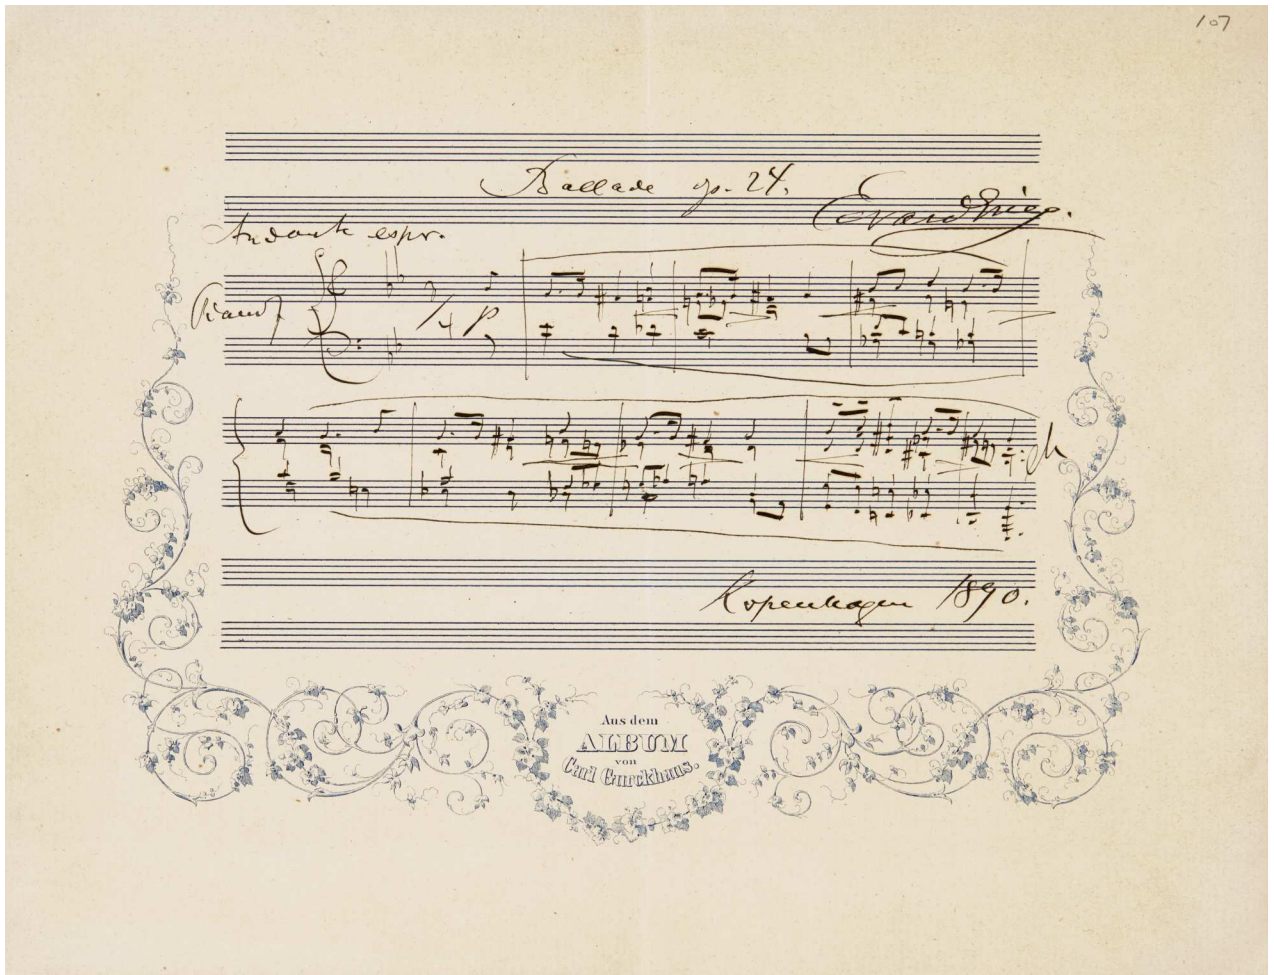 107
Ballade op. 24.
Edvard Grieg.
Andante espr.
Piano
p
Kopenhagen 1890.
Aus dem
ALBUM
von
Carl Gurckhaus.